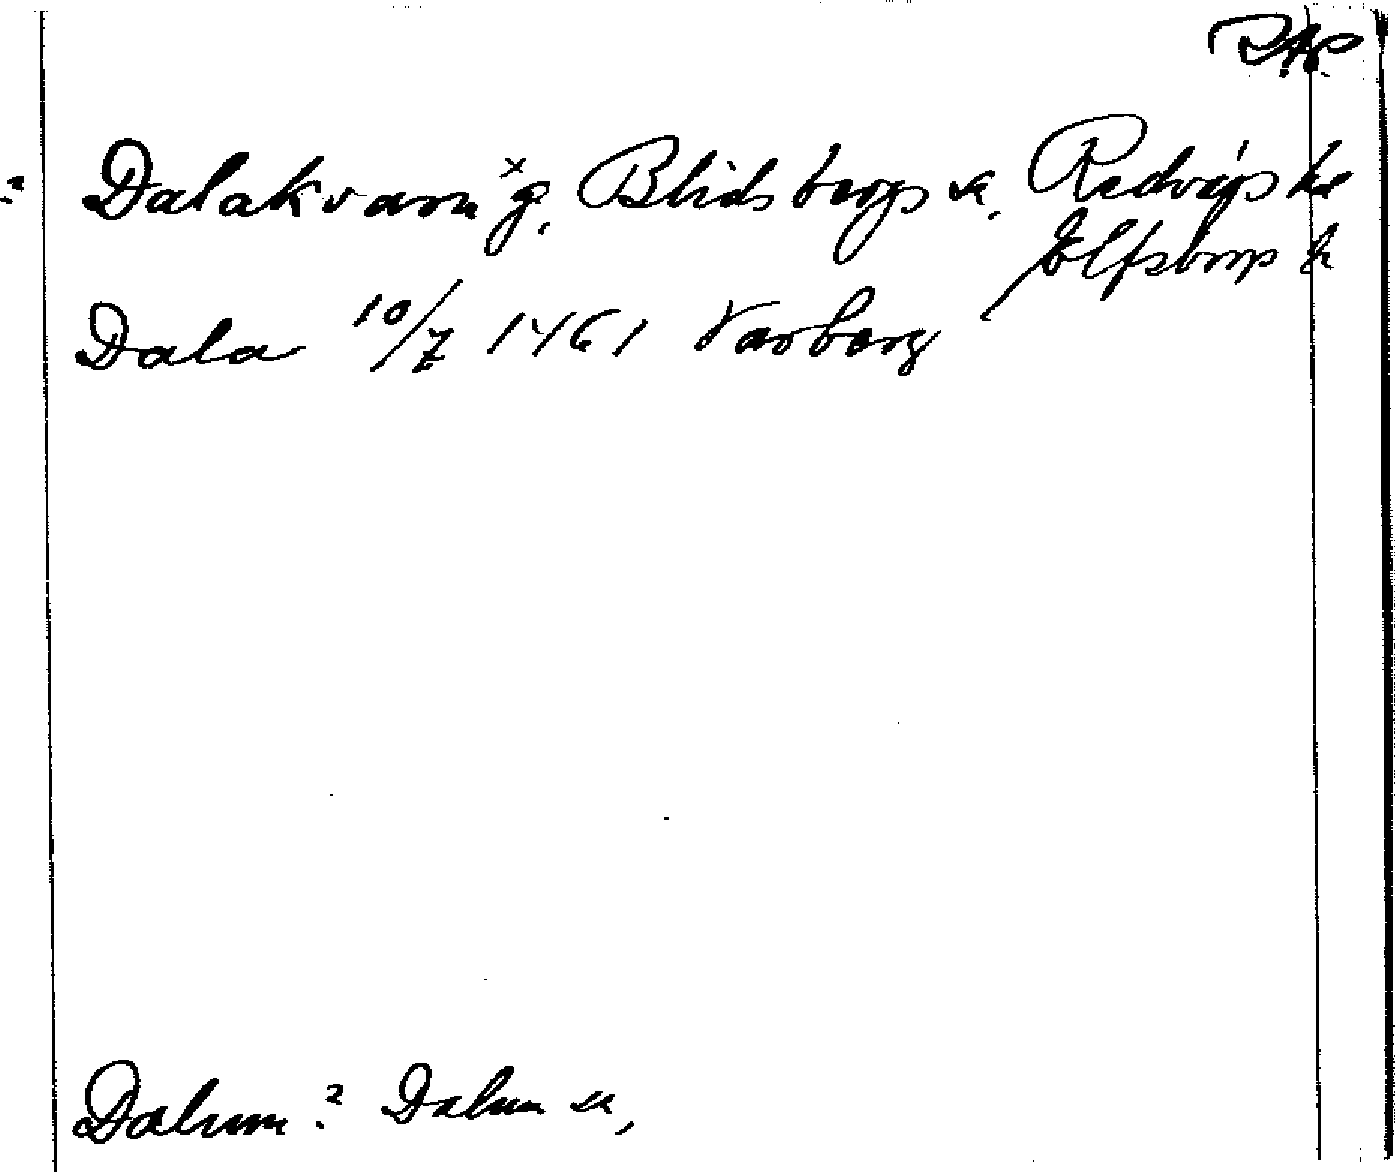 RAP
? Dalakvarn ˣg, Blidsbergs sn, Redvägs hd
Elfsborgs l.
Dala 10/7 1461 Varberg
Dalum? Dalum sn,